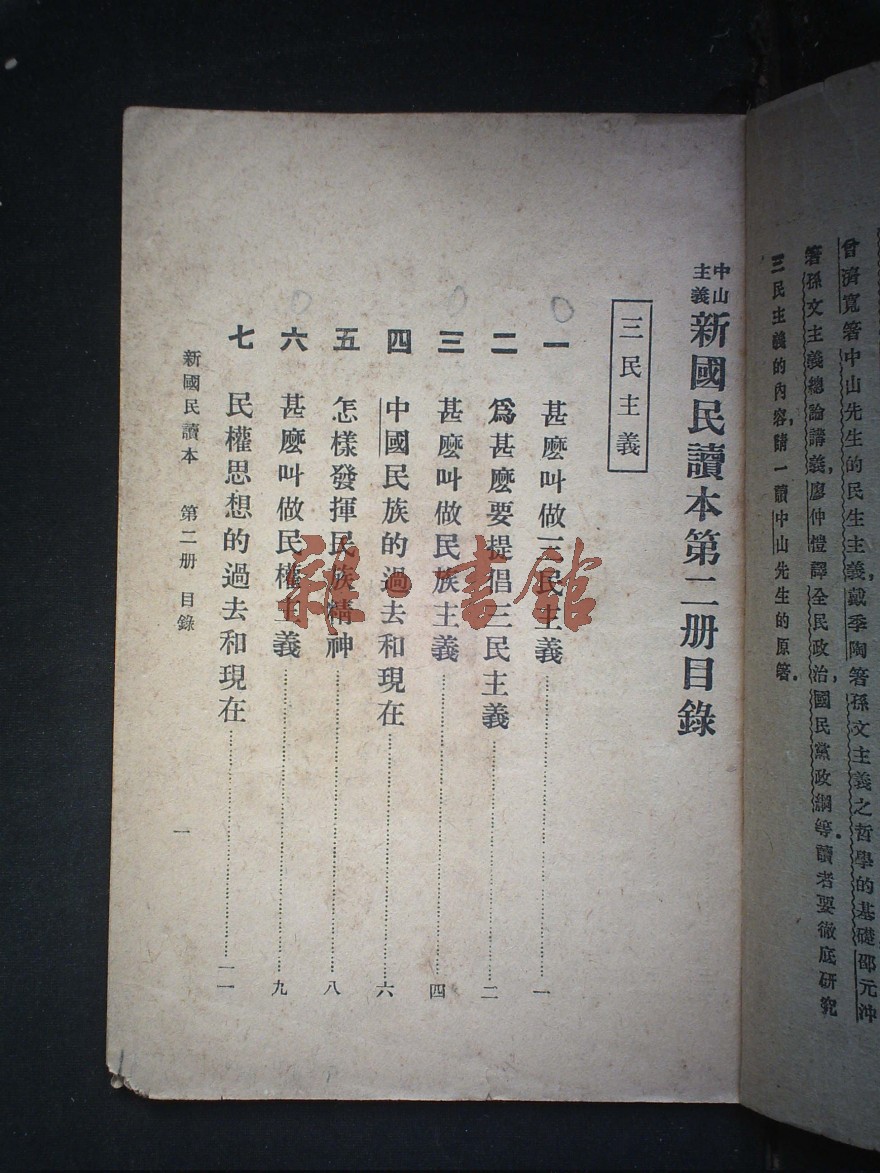 曾濟寬箸中山先生的民生主義，戴季陶箸孫文主義之哲學的基礎，邵元沖
箸孫文主義總論講義，廖仲愷譯全民政治，國民黨政綱等。讀者要徹底研究
三民主義的內容，請一讀中山先生的原箸。
中山主義新國民讀本第二册目錄
三民主義
一 甚麽叫做三民主義……一
二 爲甚麽要提倡三民主義……二
三 甚麽叫做民族主義……四
四 中國民族的過去和現在……六
五 怎樣發揮民族精神……八
六 甚麽叫做民權主義……九
七 民權思想的過去和現在……一一
新國民讀本 第二册 目錄 一
雜·書館